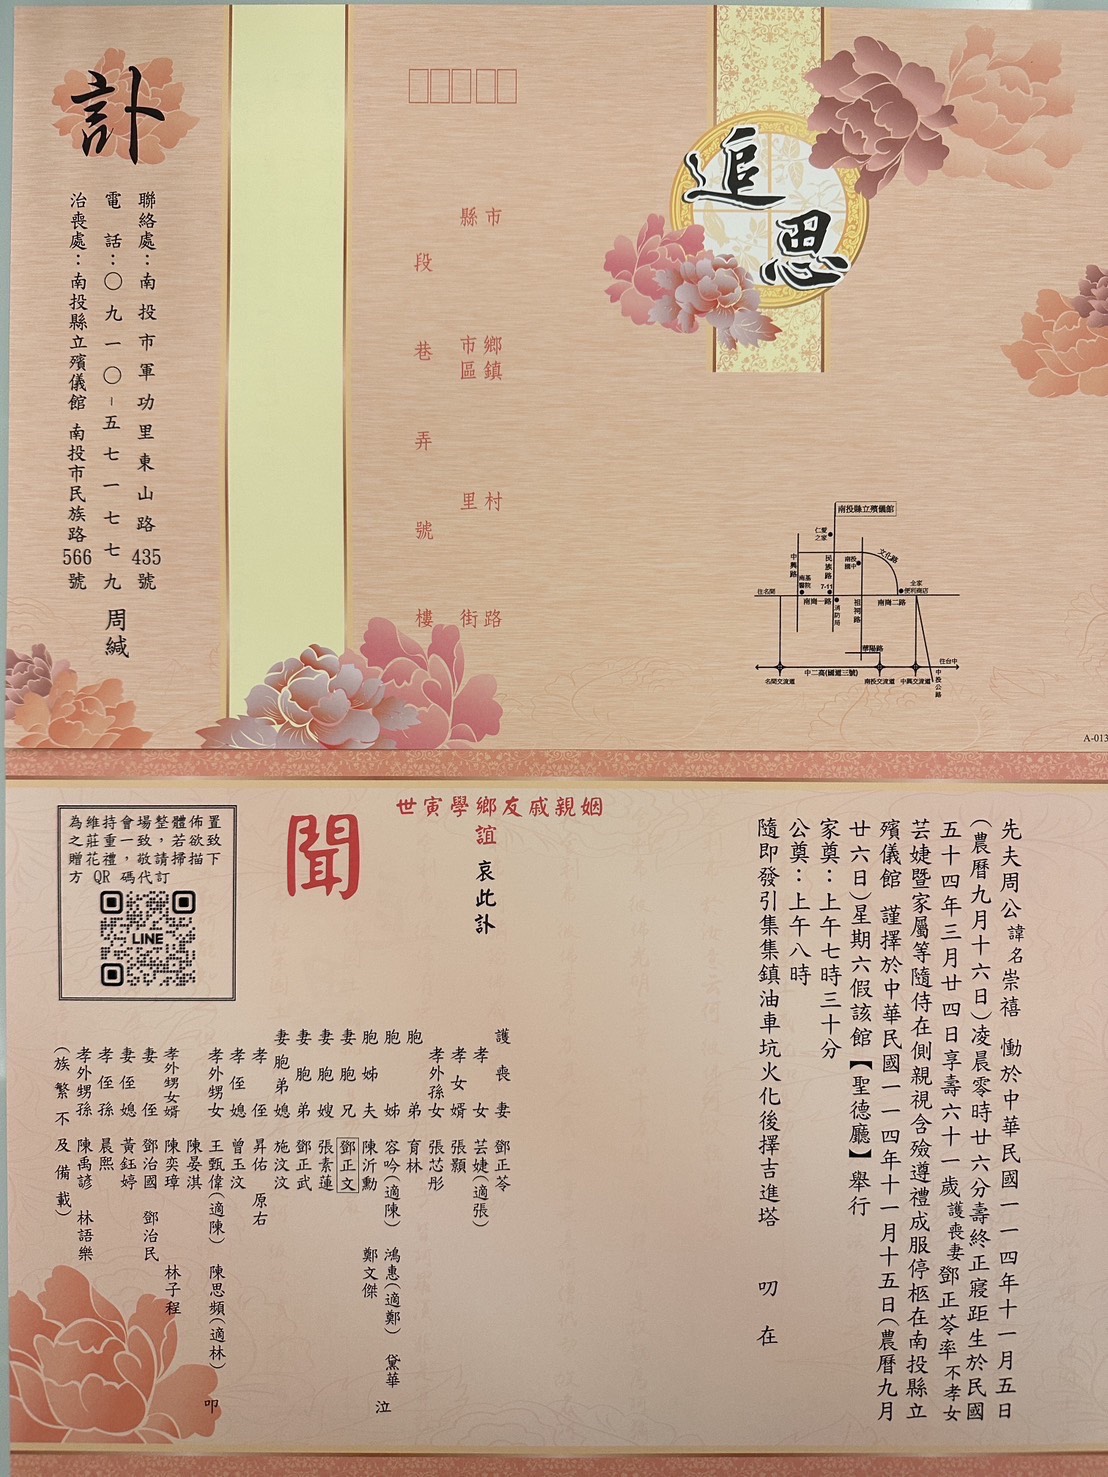 訃
聯絡處：南投市軍功里東山路435號
電話：〇九一〇-五七一七七九 周緘
治喪處：南投縣立殯儀館 南投市民族路566號
追思
市 鄉鎮 村 路
縣 市區 里 街
段 巷 弄 號 樓
南投縣立殯儀館
仁愛之家
文化路
中興路
民族路
南投國中
南基醫院
7-11
全家便利商店
往名間
南崗一路
消防局
祖祠路
南崗二路
華陽路
往台中
中二高(國道三號)
名間交流道
南投交流道
中興交流道
中投公路
A-013
先夫周公諱名崇禧 慟於中華民國一一四年十一月五日
(農曆九月十六日)凌晨零時廿六分壽終正寢距生於民國
五十四年三月廿四日享壽六十一歲護喪妻鄧正苓率不孝女
芸婕暨家屬等隨侍在側親視含殮遵禮成服停柩在南投縣立
殯儀館 謹擇於中華民國一一四年十一月十五日(農曆九月
廿六日)星期六假該館【聖德廳】舉行
家奠：上午七時三十分
公奠：上午八時
隨即發引集集鎮油車坑火化後擇吉進塔 叨 在
世寅學鄉友戚親姻
誼 哀此訃
聞
護喪妻 鄧正苓
孝女 芸婕(適張)
孝女婿 張顥
孝外孫女 張芯彤
胞弟 育林
胞姊 容吟(適陳) 鴻惠(適鄭) 黛華 泣
胞姊夫 陳沂勳 鄭文傑
妻胞兄 鄧正文
妻胞嫂 張素蓮
妻胞弟 鄧正武
妻胞弟媳 施汶汶
孝侄 昇佑 原右
孝侄媳 曾玉汶
孝外甥女 王甄偉(適陳) 陳思頻(適林) 叩
陳晏淇
孝外甥女婿 陳奕璋 林子程
妻侄 鄧治國 鄧治民
妻侄媳 黃鈺婷
孝侄孫 晨熙
孝外甥孫 陳禹諺 林語樂
(族繁不及備載)
為維持會場整體佈置
之莊重一致，若欲致
贈花禮，敬請掃描下
方 QR 碼代訂
LINE